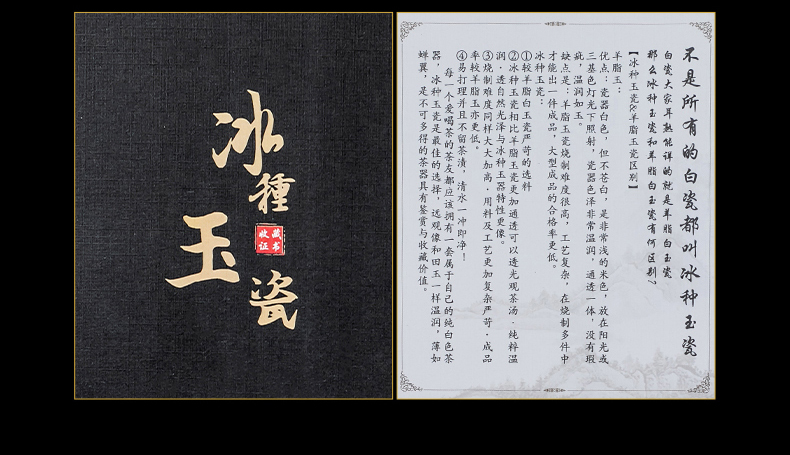 冰種
玉瓷
收藏
证书
不是所有的白瓷都叫冰种玉瓷
白瓷大家耳熟能详的就是羊脂白玉瓷
那么冰种玉瓷和羊脂白玉瓷有何区别?
【冰种玉瓷&羊脂玉瓷区别】
羊脂玉:
优点:瓷器白色,但不苍白,是非常浅的米色,放在阳光或
三基色灯光下照射,瓷器色泽非常温润,通透一体,没有瑕
疵,温润如玉。
缺点是:羊脂玉瓷烧制难度很高,工艺复杂,在烧制多件中
才能出一件成品,大型成品的合格率更低。
冰种玉瓷:
①较羊脂白玉瓷严苛的选料
②冰种玉瓷相比羊脂玉瓷更加通透可以透光观茶汤.纯粹温
润.透自然光泽与冰种玉器特性更像。
③烧制难度同样大大加高.用料及工艺更加复杂严苛.成品
率较羊脂玉亦更低。
④易打理并且不留茶渍,清水一冲即净!
每一个爱喝茶的茶友都应该拥有一套属于自己的纯白色茶
器,冰种玉瓷是最佳的选择,远观像和田玉一样温润,薄如
蝉翼,是不可多得的茶器具有鉴赏与收藏价值。